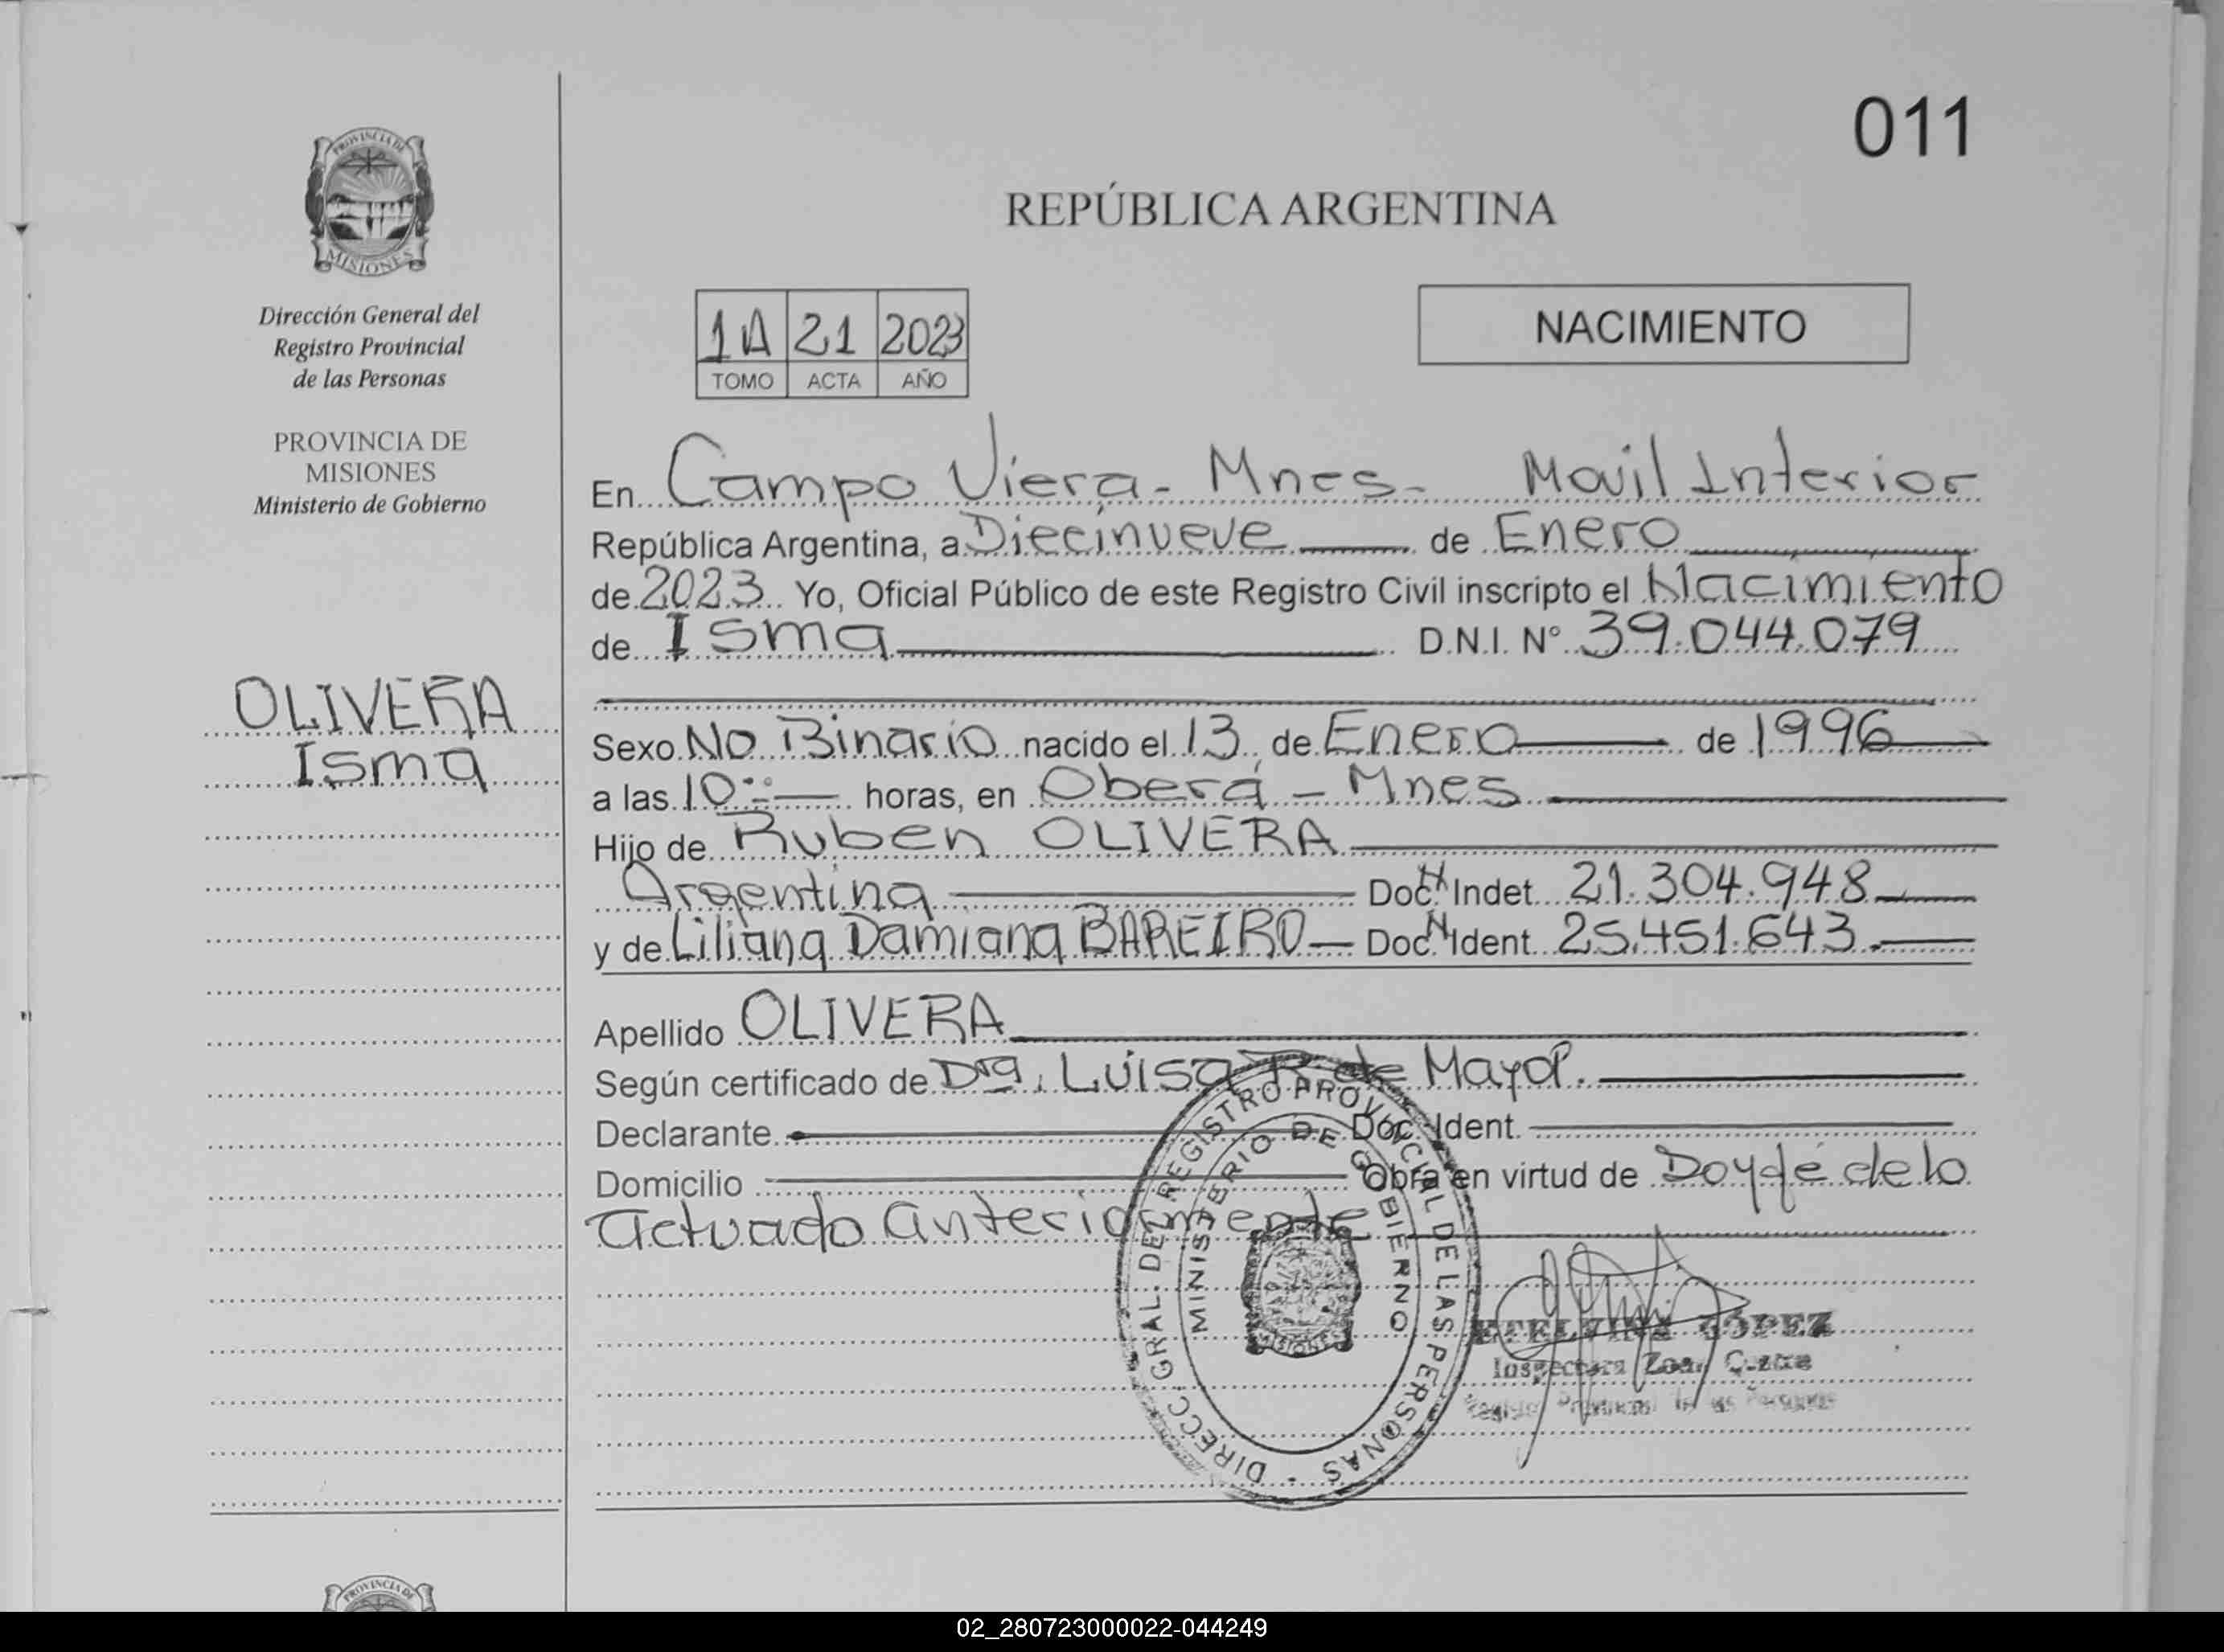 011
PROVINCIA DE
MISIONES
Dirección General del
Registro Provincial
de las Personas
PROVINCIA DE
MISIONES
Ministerio de Gobierno
OLIVERA
Isma
REPÚBLICA ARGENTINA
1A 21 2023
TOMO ACTA AÑO
NACIMIENTO
En Campo Viera - Mnes - Movil Interior
República Argentina, a Diecinueve de Enero
de 2023 Yo, Oficial Público de este Registro Civil inscripto el Nacimiento
de Isma D.N.I. N° 39.044.079
Sexo No Binario nacido el 13 de Enero de 1996
a las 10 horas, en Oberá - Mnes
Hijo de Ruben OLIVERA
Argentina Doc. Indet. 21.304.948
y de Liliana Damiana BAREIRO Doc. Ident. 25.451.643
Apellido OLIVERA
Según certificado de Dra. Luisa R de Mayol.
Declarante Doc. Ident.
Domicilio Obra en virtud de Doy fé de lo
actuado anteriormente
DIRECC. GRAL. DEL REGISTRO PROVINCIAL DE LAS PERSONAS -
MINISTERIO DE GOBIERNO
MISIONES
Inspectora Zona
PROVINCIA DE
02_280723000022-044249